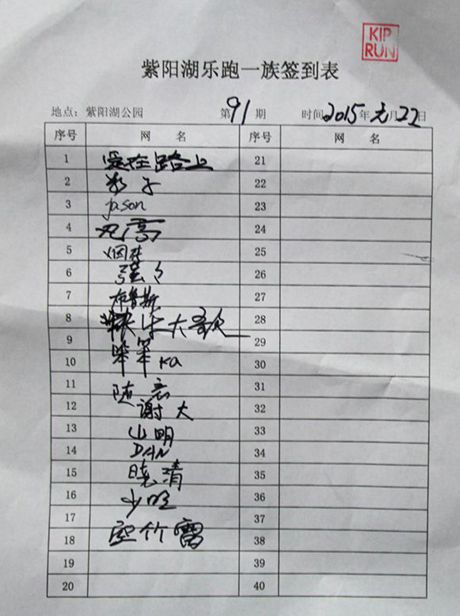 KIP
RUN
紫阳湖乐跑一族签到表
地点：紫阳湖公园 第91期 时间2015年元月22日
序号 网 名 序号 网 名
1 爱在路上 21
2 影子 22
3 jason 23
4 24
5 25
6 强 26
7 布鲁斯 27
8 快乐大 28
9 29
10 笨笨 ka 30
11 随意 31
12 谢大 32
13 山明 33
14 DAN 34
15 晓清 35
16 少旺 36
17 37
18 空竹雷 38
19 39
20 40